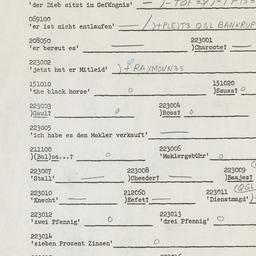 'der Dieb sitzt im Gefängnis'
069100
'er ist nicht entlaufen' )+PLEITE QGL BANKRUP
208050 223001
'er bereut es' )Charoote?
223002
'jetzt hat er Mitleid' )+RAYMOUNES
151010 151020
'the black horse' o )Ssuss? o
223003 223004
)Gaul? o )Ross? o
223005
'ich habe es dem Makler verkauft'
211100 223006
)(Bal)sa...? o 'Maklergebühr' o
223007 223008 223009
'Stall' )Cheeder? )Baajes?
223010 212060 223011 (QGL
'Knecht' )Eefet? 'Dienstmagd' )
223012 223013
'zwei Pfennig' o 'drei Pfennig' o
223014
'sieben Prozent Zinsen' o